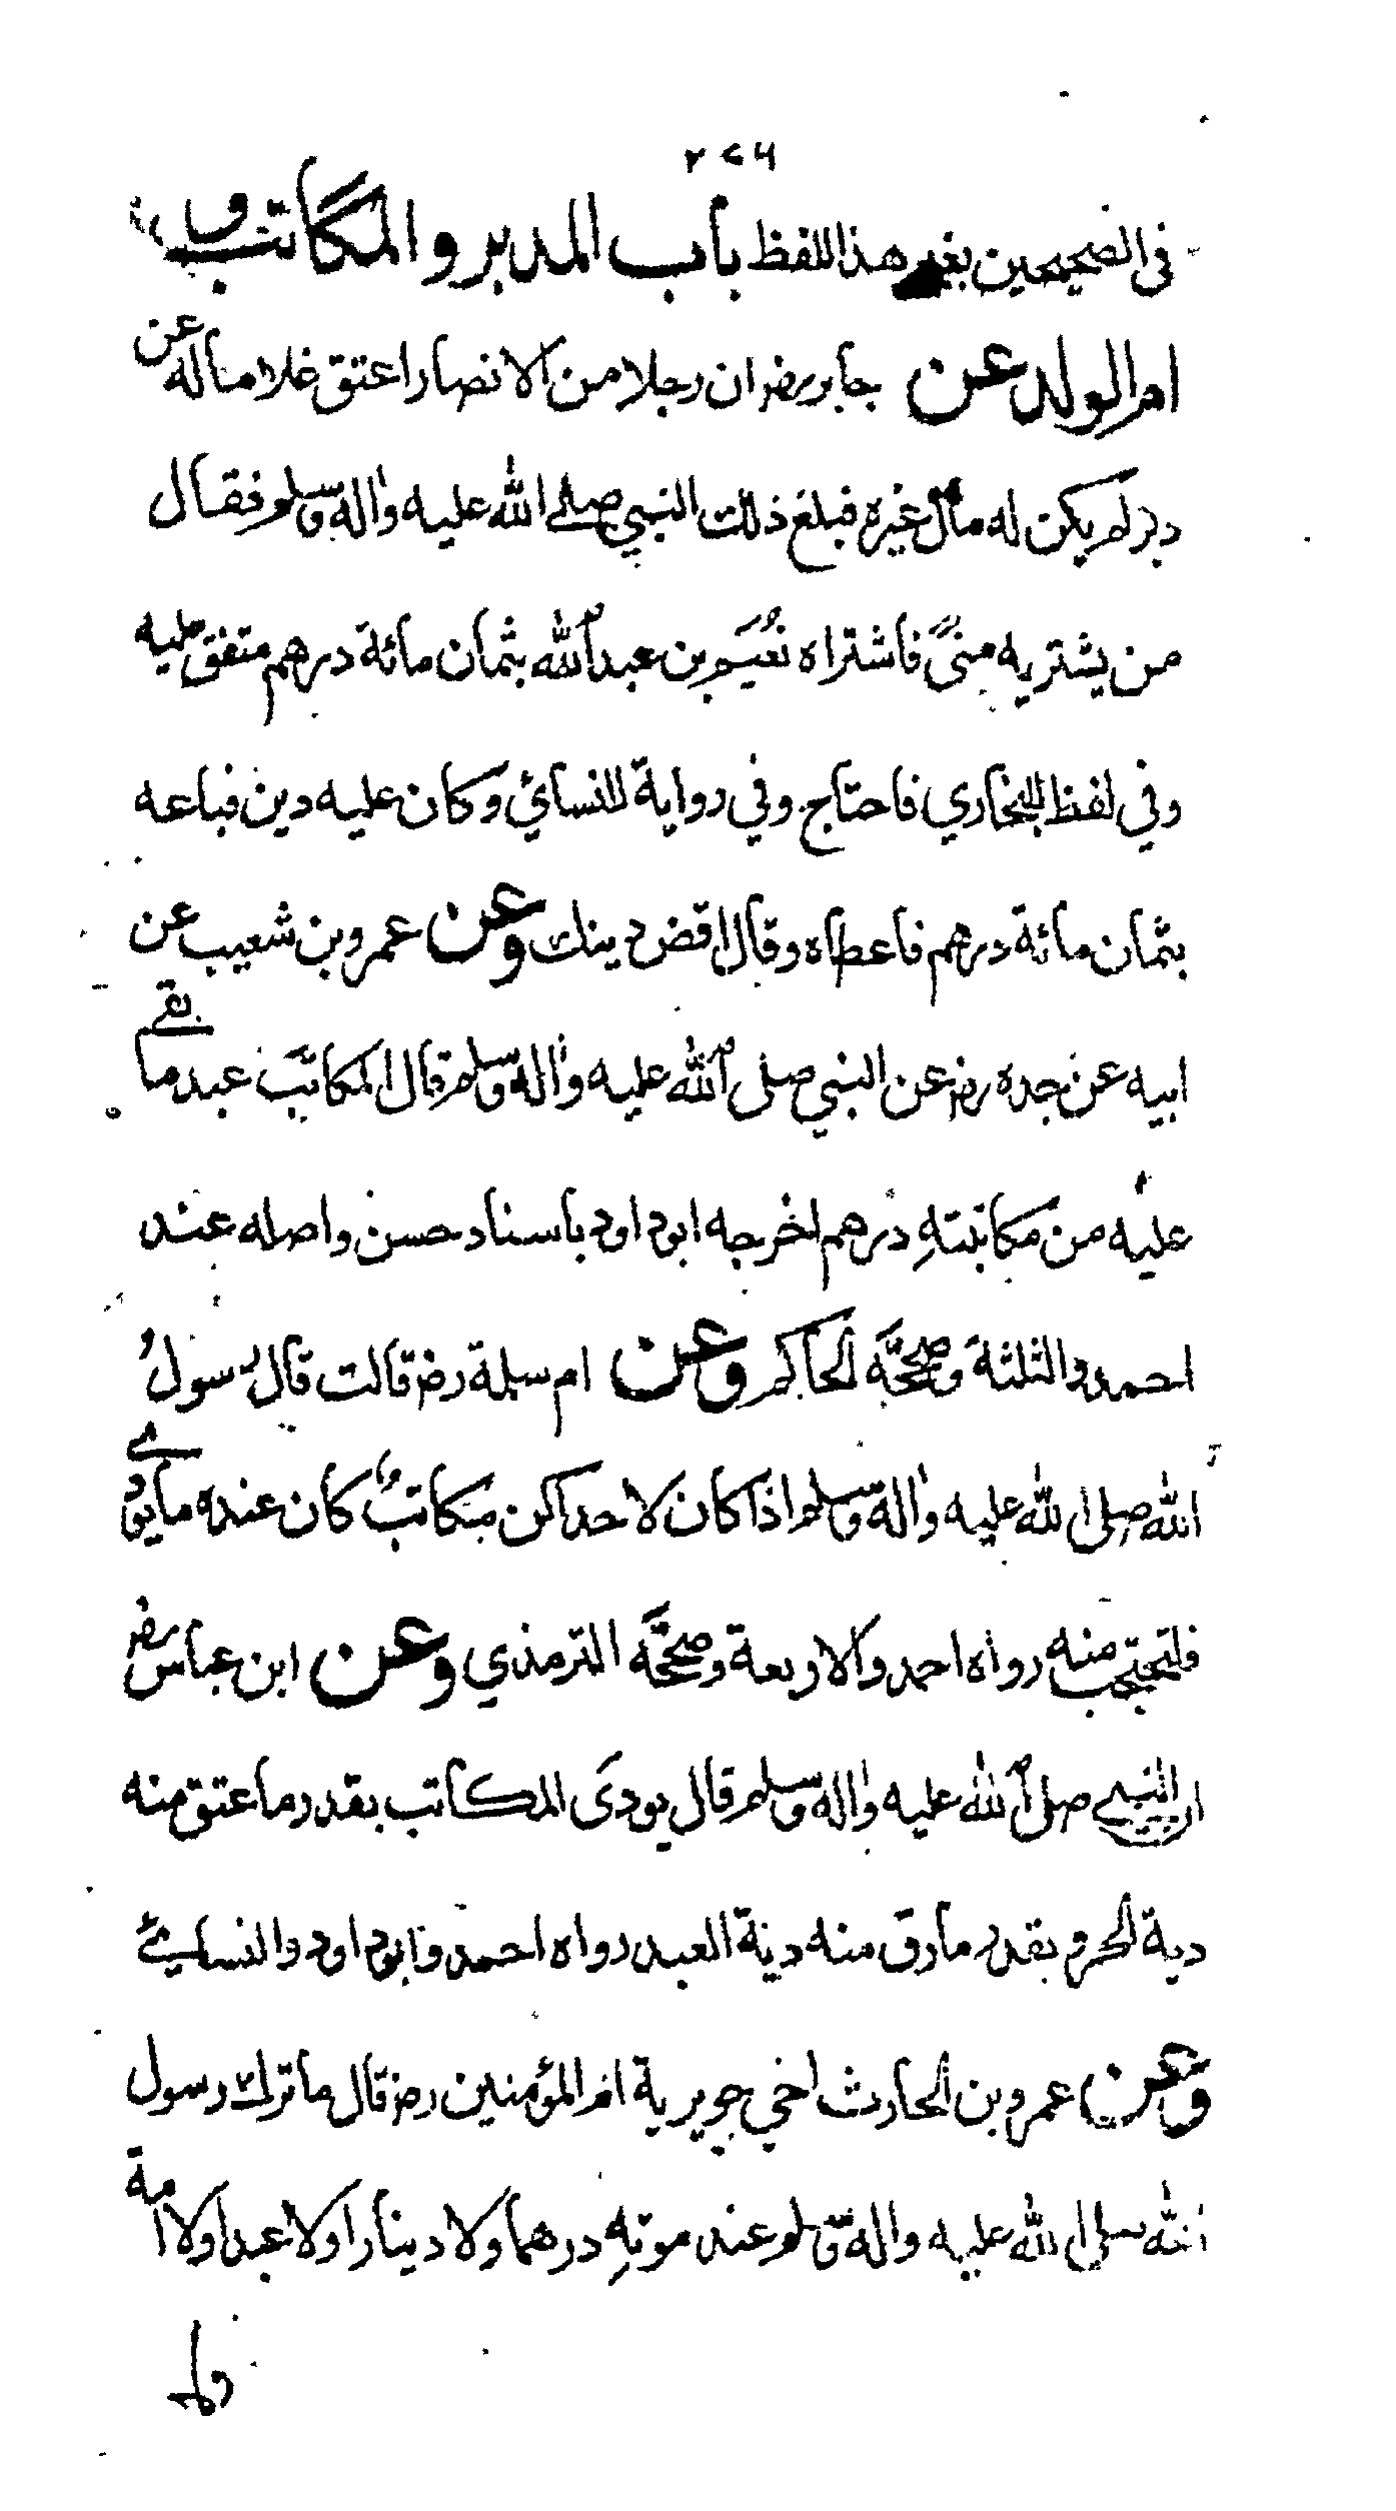 ٢٧٦
في الصحيحين بغير هذا اللفظ باب المدبر والمكاتب و
ام الولد عن جابر رضـ ان رجلا من الانصار اعتق غلاما له عن
دبر لم يكن له مال غيره فبلغ ذلك النبي صلى الله عليه واله وسلم فقال
من يشتريه منّي فاشتراه نُعَيم بن عبد الله بثمان مائة درهم متفق عليه
وفي لفظ للبخاري فاحتاج وفي رواية للنسائي وكان عليه دين فباعه
بثمان مائة درهم فاعطاه وقال اقض دينك وعن عمرو بن شعيب عن
ابيه عن جده رضـ عن النبي صلى الله عليه واله وسلم قال المكاتَب عبد ما بقي
عليه من مكاتبتهِ درهم اخرجه ابو داود باسناد حسن واصله عند
احمد والثلثة وصحّحَه الحاكم وعن ام سلمة رضـ قالت قال رسولُ
الله صلى الله عليه واله وسلم اذا كان لاحداكن مكاتبٌ وكان عنده ما يودي
فلتحتجب منه رواه احمد والاربعة وصحّحَه الترمذي وعن ابن عباس رضـ
ان النبي صلى الله عليه واله وسلم قال يودَى المكاتب بقدر ما عتق منه
دية الحر و بقدر مارق منه دية العبد رواه احمد وابو داود والنسائي
وعن عمرو بن الحارث اخي جويرية ام المؤمنين رضـ قال ما ترك رسول
الله صلى الله عليه واله وسلم عند موتهِ درهما ولا دينارا ولا عبدا ولا امة